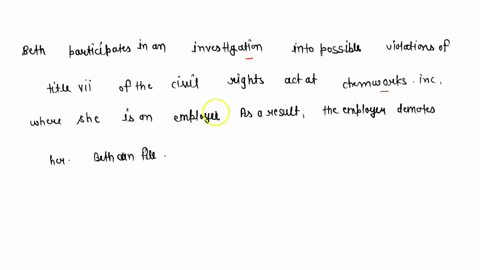 Beth participates in an investigation into possible violations of
title vii of the civil rights act at chemworks. inc,
where she is an employee As a result, the employer demotes
her. Beth can file.